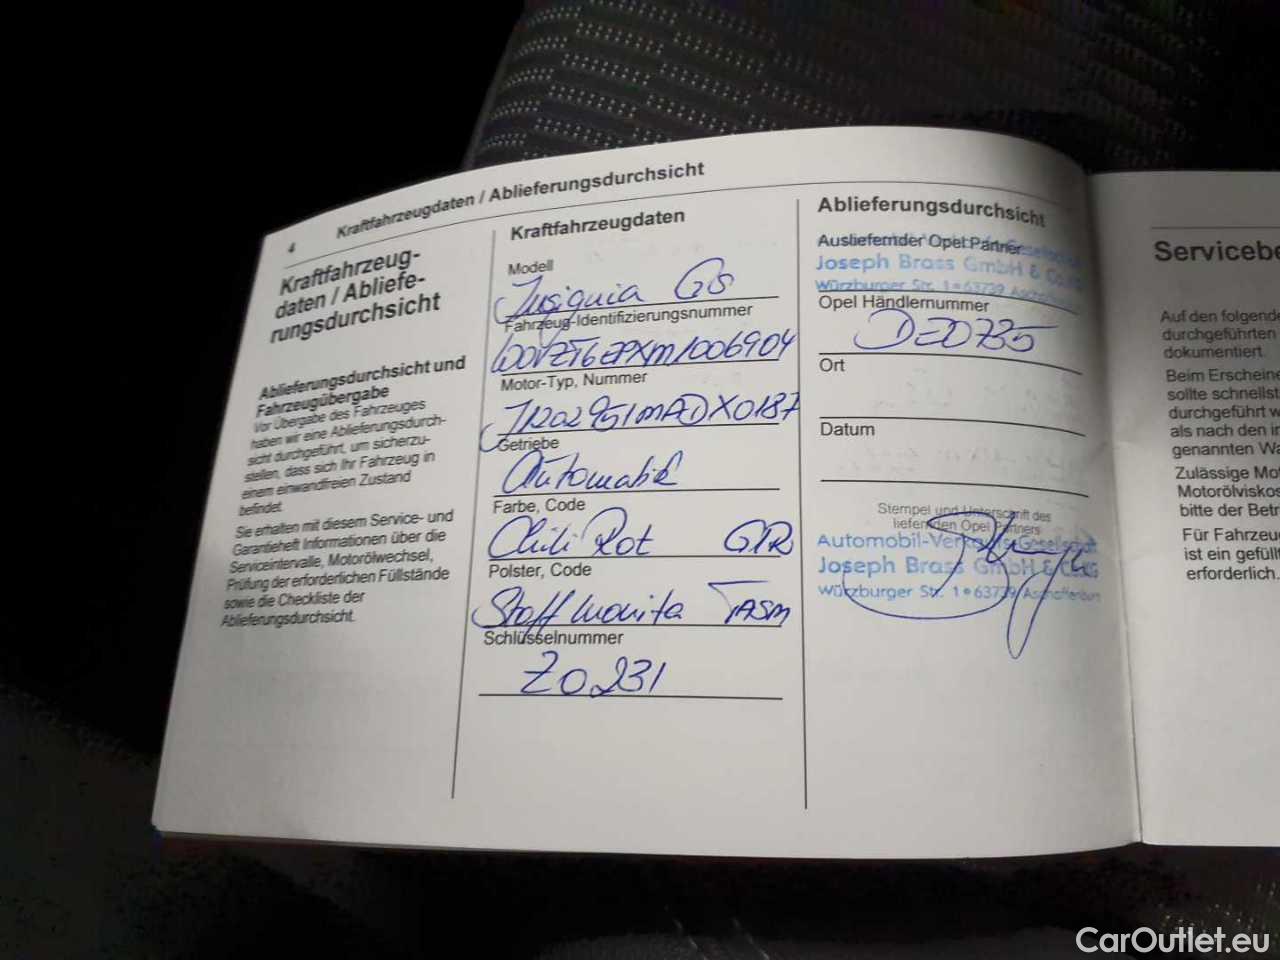 4
Kraftfahrzeugdaten / Ablieferungsdurchsicht
Kraftfahrzeug-
daten / Abliefe-
rungsdurchsicht
Ablieferungsdurchsicht und
Fahrzeugübergabe
Vor Übergabe des Fahrzeuges
haben wir eine Ablieferungsdurch-
sicht durchgeführt, um sicherzu-
stellen, dass sich Ihr Fahrzeug in
einem einwandfreien Zustand
befindet.
Sie erhalten mit diesem Service- und
Garantieheft Informationen über die
Serviceintervalle, Motorölwechsel,
Prüfung der erforderlichen Füllstände
sowie die Checkliste der
Ablieferungsdurchsicht.
Kraftfahrzeugdaten
Modell
Insignia GS
Fahrzeug-Identifizierungsnummer
W0VZT6EPXM1006904
Motor-Typ, Nummer
Getriebe
Automatik
Farbe, Code
Chili Rot G1R
Polster, Code
Stoff Monita TASM
Schlüsselnummer
Z0231
Ablieferungsdurchsicht
Ausliefernder Opel Partner
Joseph Brass GmbH & Co. KG
Würzburger Str. 1 • 63739 Aschaffenburg
Opel Händlernummer
DE0735
Ort
Datum
Stempel und Unterschrift des
liefernden Opel Partners
Automobil-Verkaufs-Gesellschaft
Joseph Brass GmbH & Co. KG
Würzburger Str. 1 • 63739 Aschaffenburg
Servicebe
Auf den folgende
durchgeführten
dokumentiert.
Beim Erscheine
sollte schnellst
durchgeführt w
als nach den in
genannten Wa
Zulässige Mot
Motorölviskos
bitte der Betr
Für Fahrzeug
ist ein gefüllt
erforderlich.
CarOutlet.eu